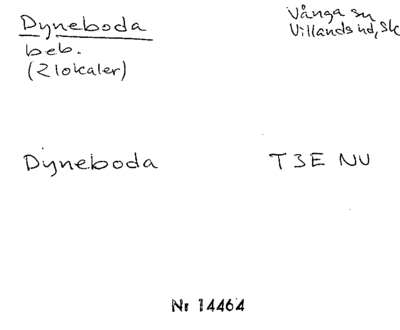 Dyneboda
Vånga sn
Villands hd, Sk
beb.
(2 lokaler)
Dyneboda T3E NV
Nr 14464